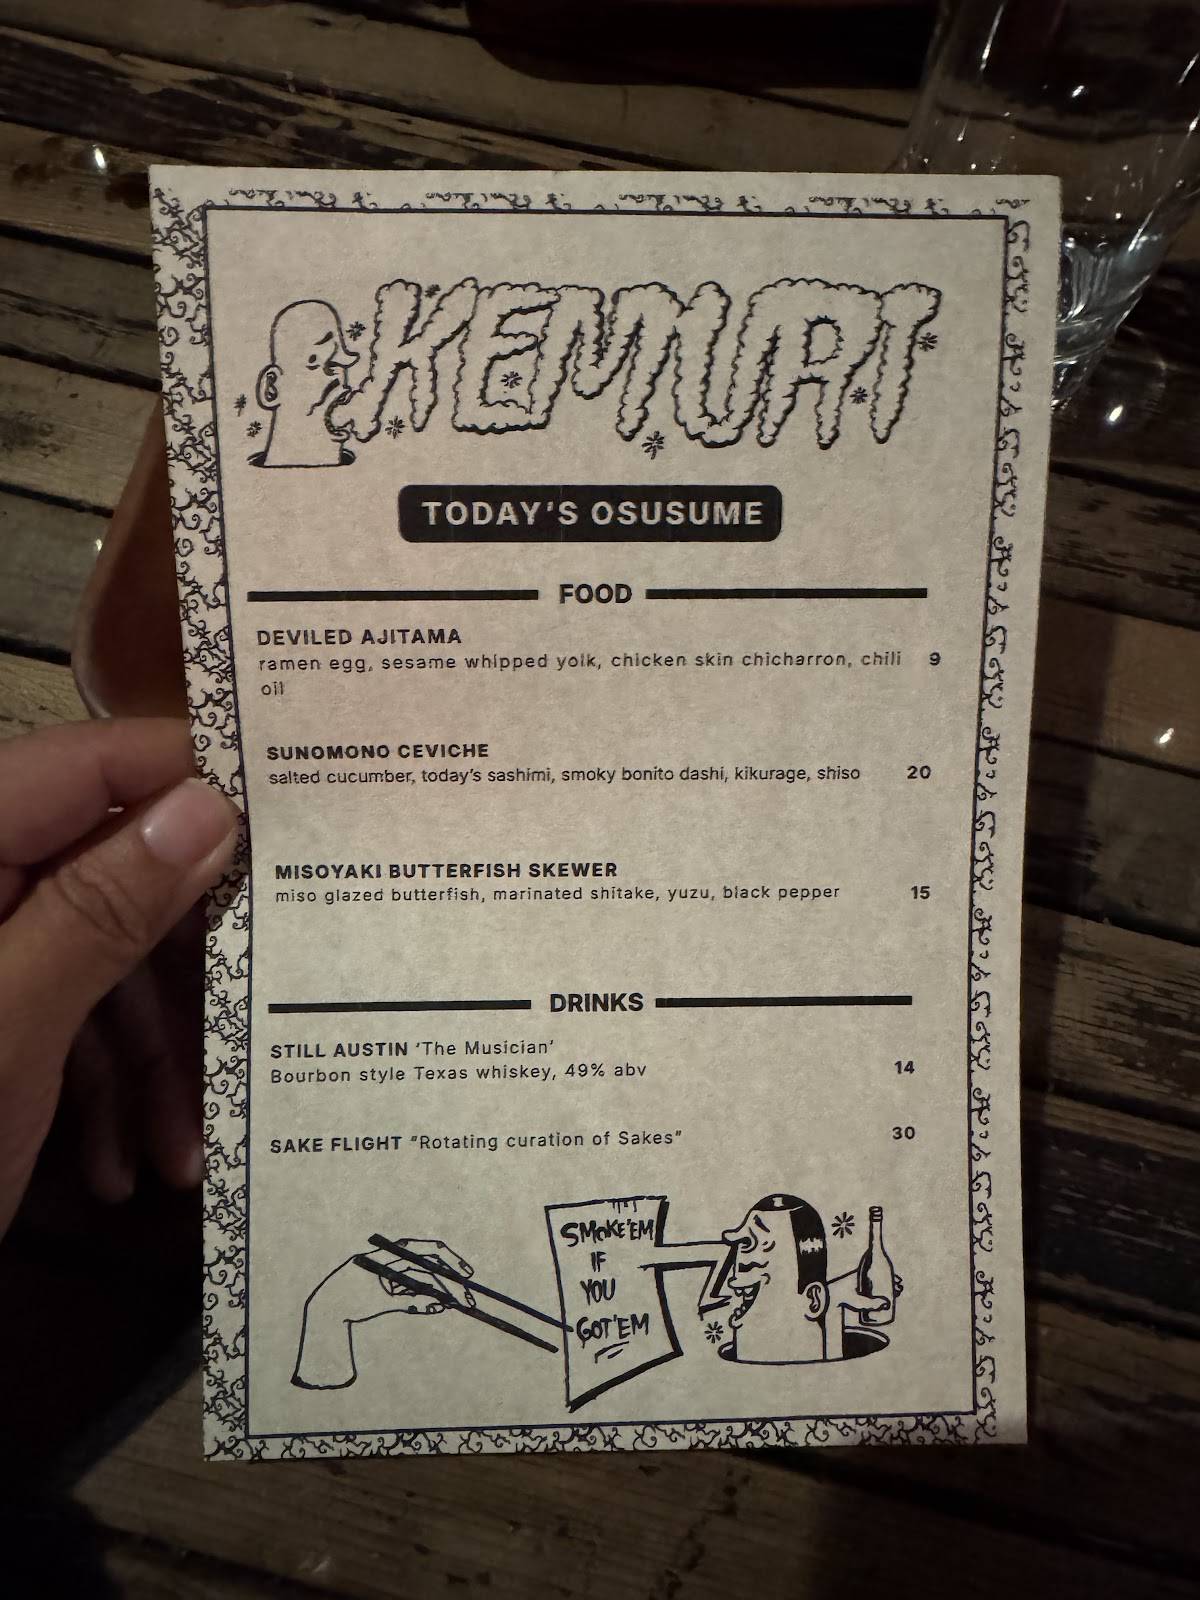 KEMURI
TODAY'S OSUSUME
FOOD
DEVILED AJITAMA
ramen egg, sesame whipped yolk, chicken skin chicharron, chili 9
oil
SUNOMONO CEVICHE
salted cucumber, today's sashimi, smoky bonito dashi, kikurage, shiso 20
MISOYAKI BUTTERFISH SKEWER
miso glazed butterfish, marinated shitake, yuzu, black pepper 15
DRINKS
STILL AUSTIN 'The Musician'
Bourbon style Texas whiskey, 49% abv 14
SAKE FLIGHT "Rotating curation of Sakes" 30
SMOKE'EM
IF
YOU
GOT'EM